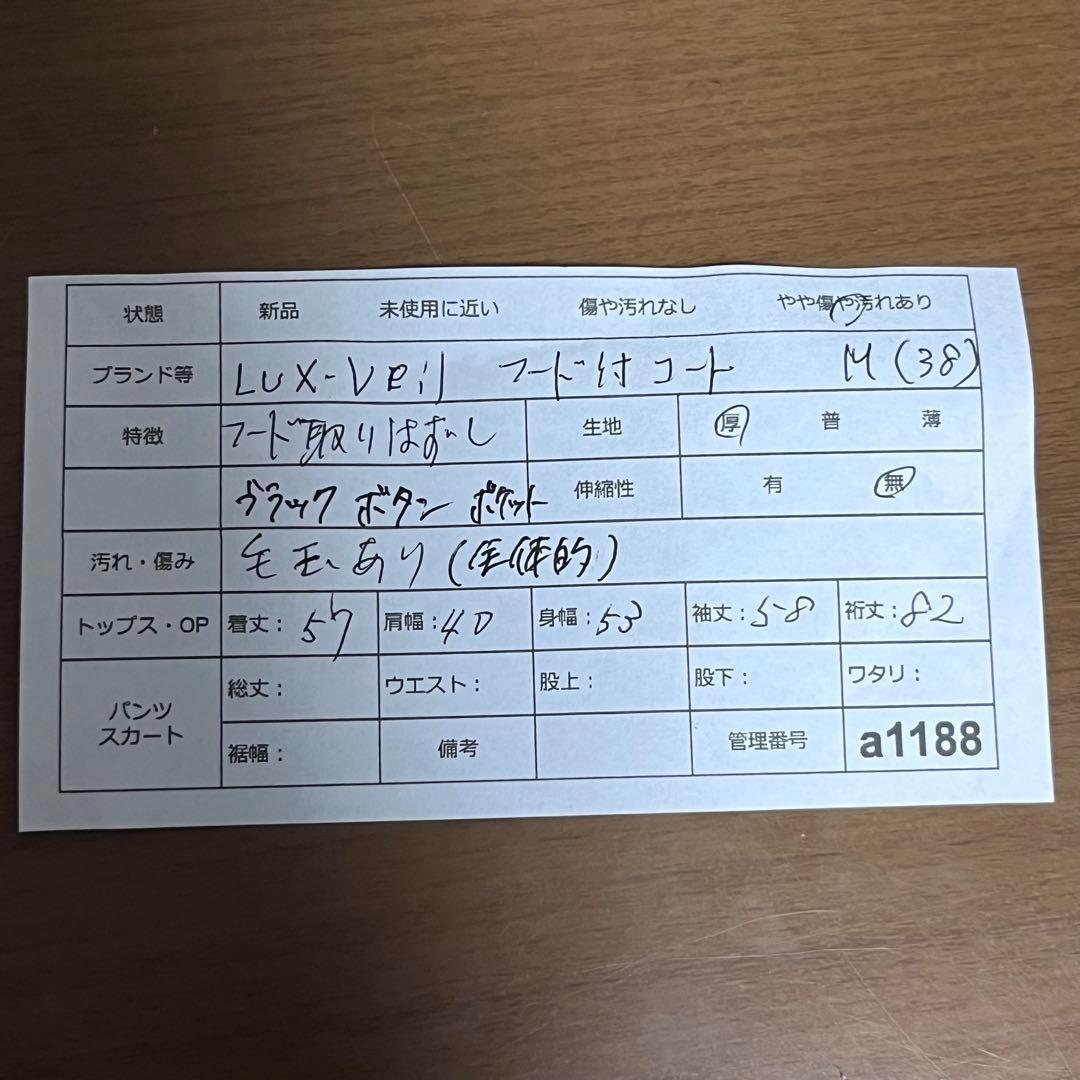 状態 新品 未使用に近い 傷や汚れなし やや傷や汚れあり
ブランド等 LUX-VEil フード付コート M(38)
特徴 フード取りはずし 生地 厚 普 薄
ブラック ボタン ポケット 伸縮性 有 無
汚れ・傷み 毛玉あり(全体的)
トップス・OP 着丈:57 肩幅:40 身幅:53 袖丈:58 裄丈:82
パンツ スカート 総丈: ウエスト: 股上: 股下: ワタリ:
裾幅: 備考 管理番号 a1188